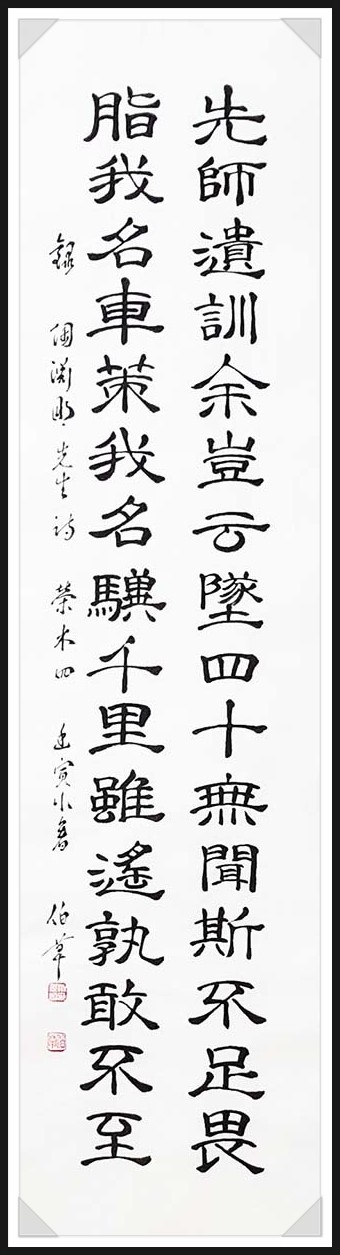 先師遺訓余豈云墜四十無聞斯不足畏
脂我名車策我名驥千里雖遙孰敢不至
錄 陶淵明先生詩 榮木四 壬寅小暑 伯葦